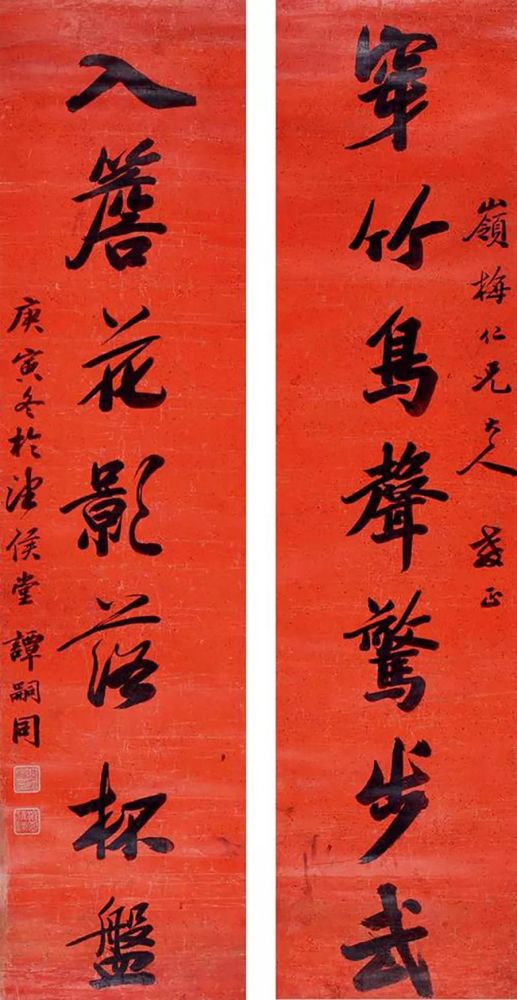 嶺梅仁兄大人教正
穿竹鳥聲驚步武
入簷花影落杯盤
庚寅冬於望侯堂譚嗣同